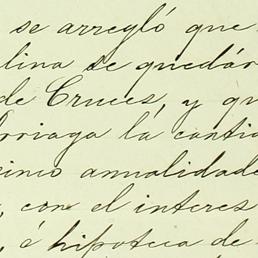 se arregló que
lina se quedár
de Cruces, y qu
rriaga la cantid
cinco anualidade
, con el interes
, é hipoteca de